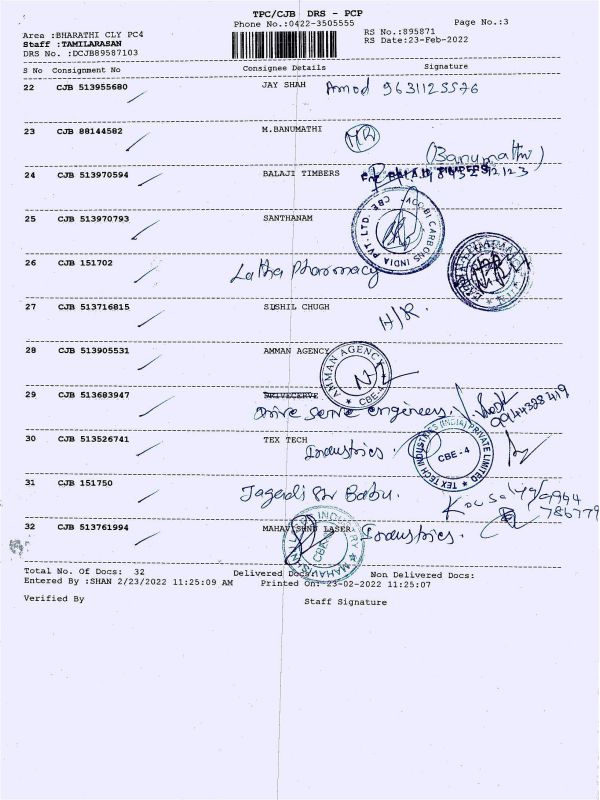 TPC/CJB DRS - PCP
Phone No.:0422-3505555
Page No.:3
Area :BHARATHI CLY PC4
RS No.:895871
Staff :TAMILARASAN
RS Date:23-Feb-2022
DRS No. :DCJB89587103
S No Consignment No Consignee Details Signature
22 CJB 513955680 JAY SHAH Amod 9631125576
23 CJB 88144582 M.BANUMATHI HR
(Banumathi)
24 CJB 513970594 BALAJI TIMBERS
25 CJB 513970793 SANTHANAM
CARBONS INDIA PVT. LTD. CBE
26 CJB 151702 Latha Pharmacy
27 CJB 513716815 SUSHIL CHUGH H/R.
28 CJB 513905531 AMMAN AGENCY
AMMAN AGENCY CBE-4
29 CJB 513683947 DRIVECERVE
Drive serve engineers. 9944328419
30 CJB 513526741 TEX TECH Industries.
TEX TECH INDUSTRIES (INDIA) PRIVATE LIMITED CBE-4
31 CJB 151750 Jagadish Babu.
32 CJB 513761994 MAHAVISHNU LASER Industries.
Total No. Of Docs: 32 Delivered Docs: Non Delivered Docs:
Entered By :SHAN 2/23/2022 11:25:09 AM Printed On: 23-02-2022 11:25:07
Verified By Staff Signature